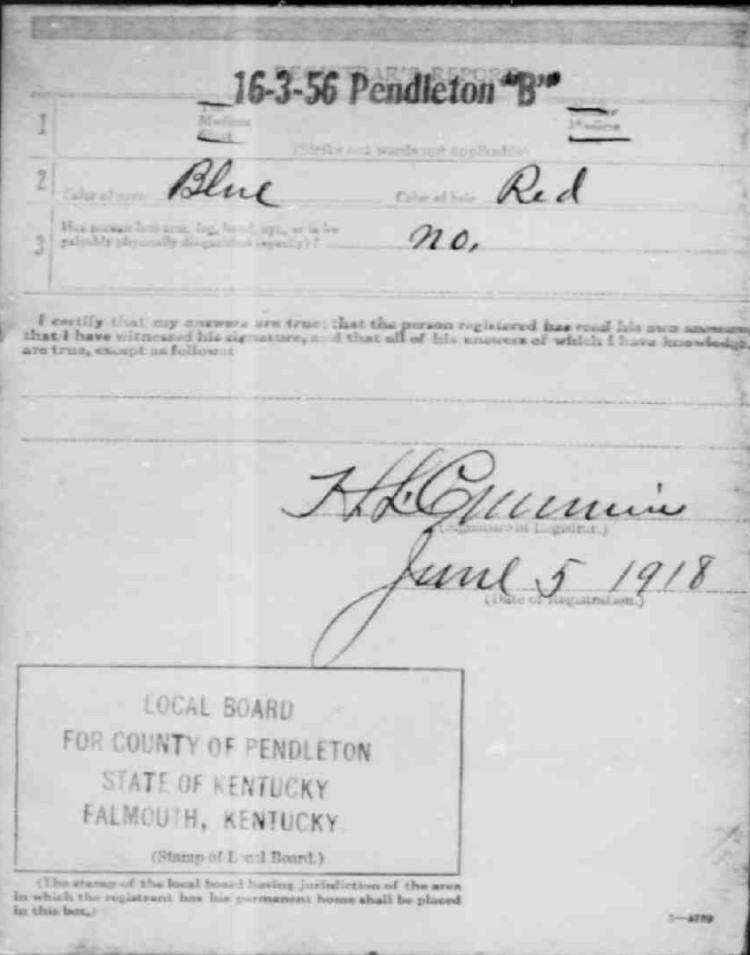 REGISTRAR'S REPORT
16-3-56 Pendleton "B"
1 Medium Medium
(Strike out words not applicable)
2 Color of eyes Blue Color of hair Red
3 Has person lost arm, leg, hand, eye, or is he
palpably physically disqualified (specify)? no.
I certify that my answers are true; that the person registered has read his own answers
that I have witnessed his signature, and that all of his answers of which I have knowledge
are true, except as follows:
H L
(Signature of Registrar.)
June 5 1918
(Date of Registration.)
LOCAL BOARD
FOR COUNTY OF PENDLETON
STATE OF KENTUCKY
FALMOUTH, KENTUCKY
(Stamp of Local Board.)
(The stamp of the local board having jurisdiction of the area
in which the registrant has his permanent home shall be placed
in this box.)